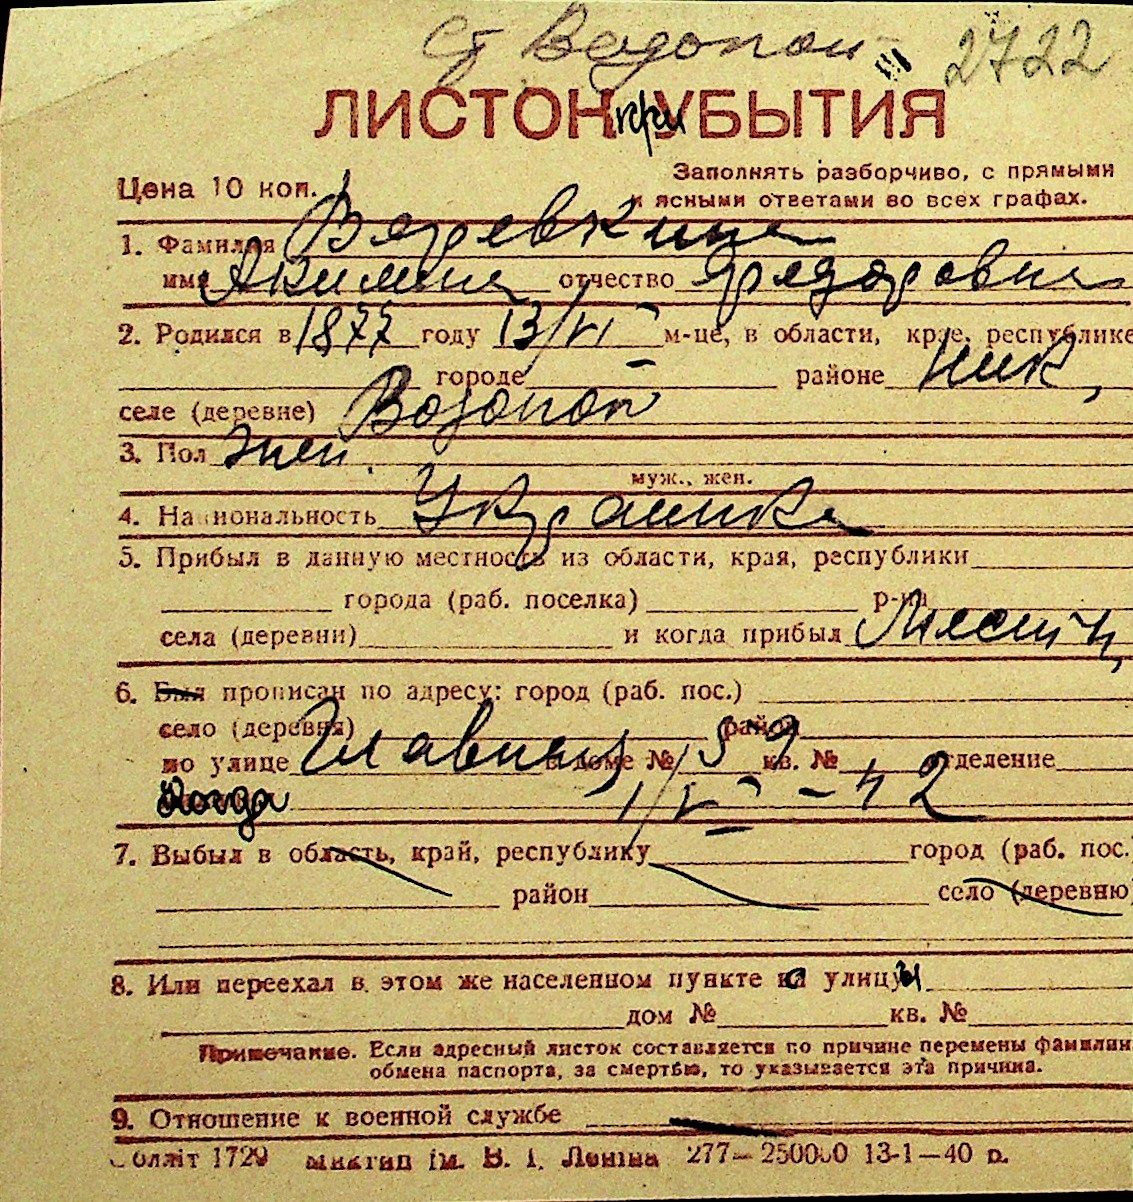 Ст Водопой 2722
ЛИСТОК при УБЫТИЯ
Заполнять разборчиво, с прямыми
Цена 10 коп. и ясными ответами во всех графах.
1. Фамилия Веревкина
имя Акилина отчество Федоровна
2. Родился в 1877 году 13/VI м-це, в области, крае, республике
городе районе Ник,
селе (деревне) Водопой
3. Пол жен.
муж., жен.
4. Национальность Украинка
5. Прибыл в данную местность из области, края, республики
города (раб. поселка) р-на
села (деревни) и когда прибыл Местн,
6. Был прописан по адресу: город (раб. пос.)
село (деревня) район
по улице Главная в доме № 59 кв. № отделение
Когда 1/VI - 42
7. Выбыл в область, край, республику город (раб. пос.)
район село (деревню)
8. Или переехал в этом же населенном пункте с улицы
дом № кв. №
Примечание. Если адресный листок составляется по причине перемены фамилии
обмена паспорта, за смертью, то указывается эта причина.
9. Отношение к военной службе
Облліт 1729 ім. В. І. Леніна 277—250000 13-1—40 р.